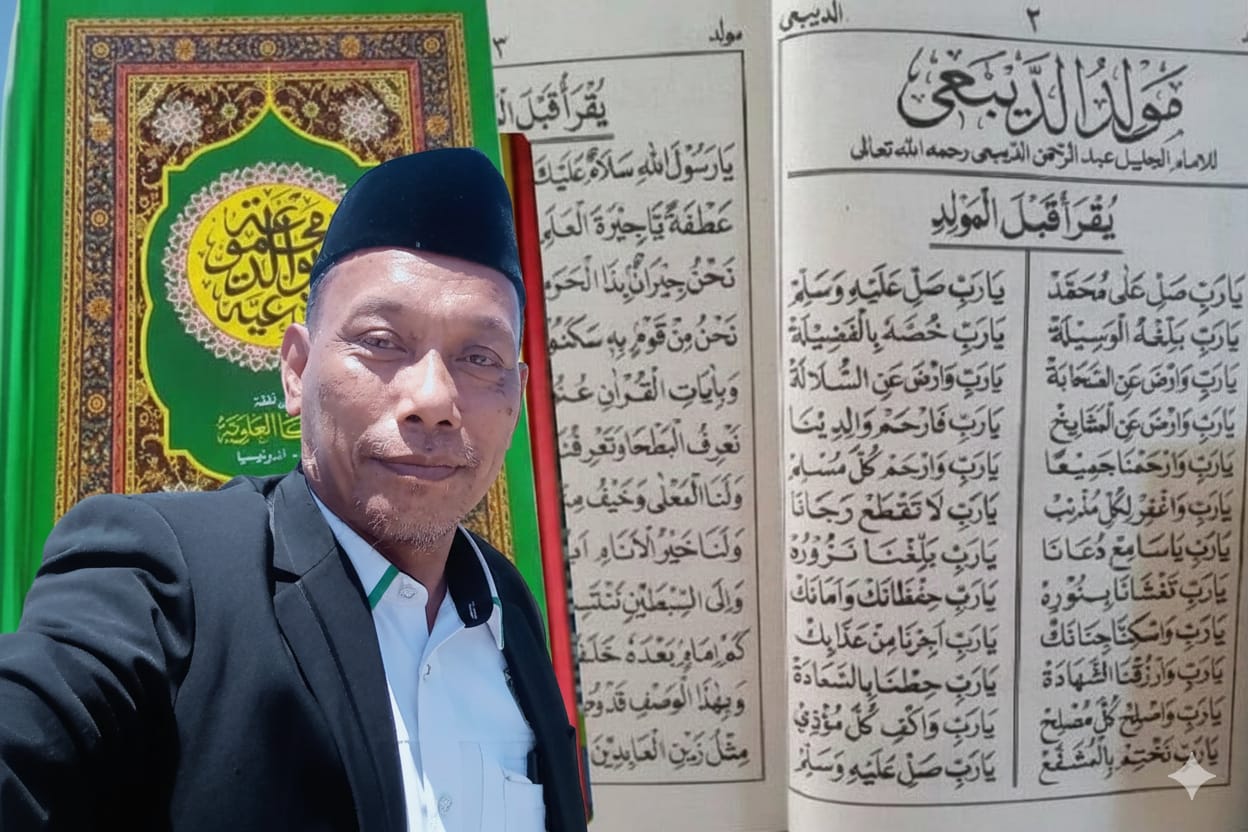 الديبعى
٢
مَوْلِدُ الدَّيْبَعِى
للامام الجليل عبد الرحمن الديبعى رحمه الله تعالى
يُقْرَأُ قَبْلَ الْمَوْلِدِ
يَارَبِّ صَلِّ عَلٰى مُحَمَّدْ يَارَبِّ صَلِّ عَلَيْهِ وَسَلِّمْ
يَارَبِّ بَلِّغْهُ الْوَسِيْلَةْ يَارَبِّ خُصَّهُ بِالْفَضِيْلَةْ
يَارَبِّ وَارْضَ عَنِ الصَّحَابَةْ يَارَبِّ وَارْضَ عَنِ السُّلَالَةْ
يَارَبِّ وَارْضَ عَنِ الْمَشَايِخْ يَارَبِّ فَارْحَمْ وَالِدِيْنَا
يَارَبِّ وَارْحَمْنَا جَمِيْعًا يَارَبِّ وَارْحَمْ كُلَّ مُسْلِمْ
يَارَبِّ وَاغْفِرْ لِكُلِّ مُذْنِبْ يَارَبِّ لَا تَقْطَعْ رَجَانَا
يَارَبِّ يَاسَامِعْ دُعَانَا يَارَبِّ بَلِّغْنَا نَزُوْرُهْ
يَارَبِّ تَغْشَانَا بِنُوْرِهْ يَارَبِّ حِفْظَانَكْ وَامَانَكْ
يَارَبِّ وَاسْكِنَّا جِنَانَكْ يَارَبِّ اَجِرْنَا مِنْ عَذَابِكْ
يَارَبِّ وَارْزُقْنَا الشَّهَادَةْ يَارَبِّ حِطْنَا بِالسَّعَادَةْ
يَارَبِّ وَاصْلِحْ كُلَّ مُصْلِحْ يَارَبِّ وَاكْفِ كُلَّ مُؤْذِيْ
يَارَبِّ نَخْتِمْ بِالْمُشَفَّعْ يَارَبِّ صَلِّ عَلَيْهِ وَسَلِّمْ
مولد
٣
يُقْرَأُ قَبْلَ
يَارَسُوْلَ اللهِ سَلَامٌ عَلَيْكَ
عَطْفَةً يَّاجِيْرَةَ الْعَلَمِ
نَحْنُ جِيْرَانٌ بِذَا الْحَرَمِ
نَحْنُ مِنْ قَوْمٍ بِهِ سَكَنُوْا
وَبِاٰيَاتِ الْقُرْاٰنِ
نَعْرِفُ الْبَطْحَا وَتَعْرِفُنَا
وَلَنَا الْمَعْلٰى وَخَيْفُ
وَلَنَا خَيْرُ الْاَنَامِ
وَاِلَى السِّبْطَيْنِ نَنْتَسِبُ
كَمْ اِمَامٍ بَعْدَهُ
وَبِهٰذَا الْوَصْفِ قَدْ
مِثْلُ زَيْنِ الْعَابِدِيْنَ
مجموعة
مولد